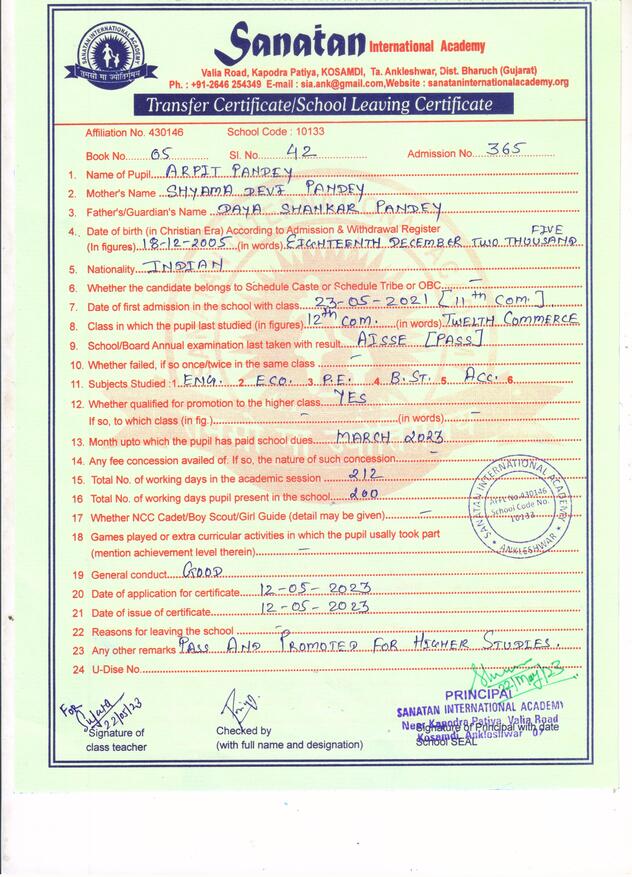 SANATAN INTERNATIONAL ACADEMY
तमसो मा ज्योतिर्गमय
Sanatan International Academy
Valia Road, Kapodra Patiya, KOSAMDI, Ta. Ankleshwar, Dist. Bharuch (Gujarat)
Ph. : +91-2646 254349 E-mail : sia.ank@gmail.com,Website : sanataninternationalacademy.org
Transfer Certificate/School Leaving Certificate
Affiliation No. 430146 School Code : 10133
Book No. 05 Sl. No. 42 Admission No. 365
1. Name of Pupil ARPIT PANDEY
2. Mother's Name SHYAMA DEVI PANDEY
3. Father's/Guardian's Name DAYA SHANKAR PANDEY
4. Date of birth (in Christian Era) According to Admission & Withdrawal Register
(In figures) 18-12-2005 (in words) EIGHTEENTH DECEMBER TWO THOUSAND FIVE
5. Nationality INDIAN
6. Whether the candidate belongs to Schedule Caste or Schedule Tribe or OBC. —
7. Date of first admission in the school with class 23-05-2021 [11th COM.]
8. Class in which the pupil last studied (in figures) 12th COM. (in words) TWELTH COMMERCE
9. School/Board Annual examination last taken with result AISSE [PASS]
10. Whether failed, if so once/twice in the same class —
11. Subjects Studied : 1. ENG. 2. ECO. 3. P.E. 4. B.ST. 5. ACC. 6.
12. Whether qualified for promotion to the higher class. YES
If so, to which class (in fig.) — (in words) —
13. Month upto which the pupil has paid school dues. MARCH 2023
14. Any fee concession availed of. If so, the nature of such concession —
15. Total No. of working days in the academic session 212
16 Total No. of working days pupil present in the school 200
17 Whether NCC Cadet/Boy Scout/Girl Guide (detail may be given) —
18 Games played or extra curricular activities in which the pupil usally took part
(mention achievement level therein) —
19 General conduct GOOD
20 Date of application for certificate 12-05-2023
21 Date of issue of certificate 12-05-2023
22 Reasons for leaving the school —
23 Any other remarks PASS AND PROMOTED FOR HIGHER STUDIES.
24 U-Dise No.
SANATAN INTERNATIONAL ACADEMY
Affi. No. 430146
School Code No.
10133
* ANKLESHWAR *
22/May/23
PRINCIPAL
SANATAN INTERNATIONAL ACADEMY
Near Kapodra Patiya, Valia Road
Kosamdi, Ankleshwar
For
22/05/23
Signature of
class teacher
Checked by
(with full name and designation)
Signature of Principal with date
School SEAL